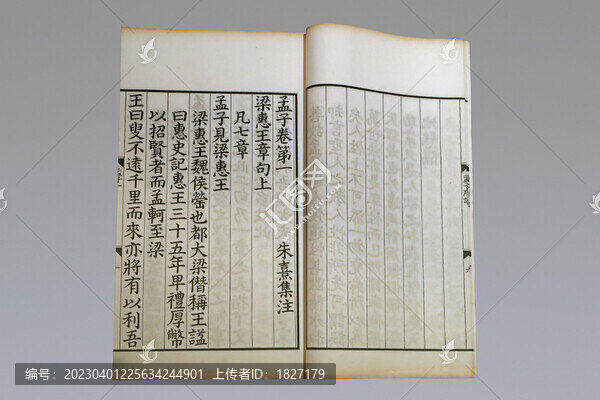 孟子卷第一　朱熹集注
梁惠王章句上
凡七章
孟子見梁惠王
梁惠王魏侯罃也都大梁僭稱王謚
曰惠史記惠王三十五年卑禮厚幣
以招賢者而孟軻至梁
王曰叟不遠千里而來亦將有以利吾
汇图网
编号:20230401225634244901 上传者ID:1827179